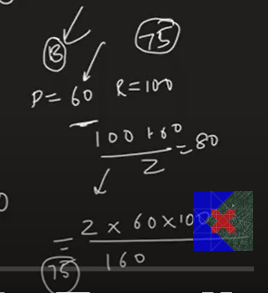 B 75
P = 60 R = 100
100 + 60
/ 2 = 80
= 2 × 60 × 100
/ 160
75